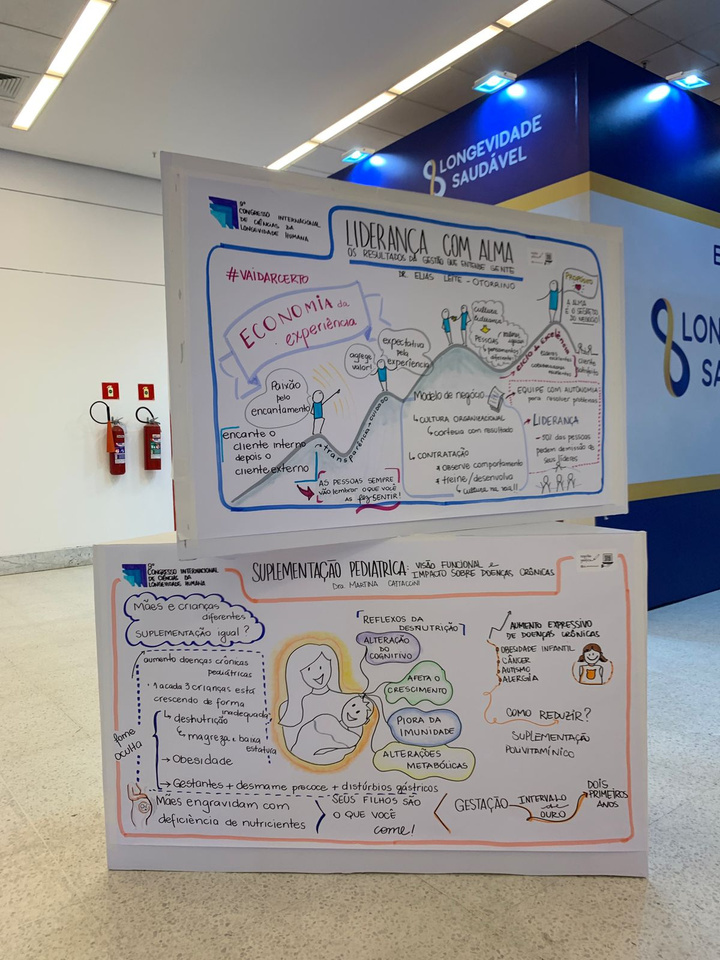 LONGEVIDADE
SAUDÁVEL
E
LON
SA
9º
CONGRESSO INTERNACIONAL
DE CIÊNCIAS DA
LONGEVIDADE HUMANA
LIDERANÇA COM ALMA
OS RESULTADOS DA GESTÃO QUE ENTENDE GENTE
DR. ELIAS LEITE - OTORRINO
#VAIDARCERTO
ECONOMIA da
experiência
Paixão
pelo
encantamento
agrega
valor!
expectativa
pela
experiência
cultura
liderança
PESSOAS
PROPÓSITO
A ALMA
É O SEGREDO
DO NEGÓCIO!
encante o
cliente interno
depois o
cliente externo
transparência
cuidado
AS PESSOAS SEMPRE
vão lembrar o que você
as faz SENTIR!
Modelo de negócio
CULTURA ORGANIZACIONAL
cortesia com resultado
CONTRATAÇÃO
observe comportamento
treine/desenvolva
cultura na veia!!
ciclo da excelência
cliente
satisfeito
EQUIPE COM AUTONOMIA
para resolver problemas
LIDERANÇA
50% das pessoas
pedem demissão de
seus líderes
9º
CONGRESSO INTERNACIONAL
DE CIÊNCIAS DA
LONGEVIDADE HUMANA
SUPLEMENTAÇÃO PEDIÁTRICA: VISÃO FUNCIONAL e
IMPACTO SOBRE DOENÇAS CRÔNICAS
Dra. MARTINA
Mães e crianças
diferentes
SUPLEMENTAÇÃO igual?
aumento doenças crônicas
pediátricas
1 a cada 3 crianças está
crescendo de forma
inadequada
desnutrição
magreza e baixa
estatura
Obesidade
Gestantes + desmame precoce + distúrbios gástricos
fome
oculta
REFLEXOS DA
DESNUTRIÇÃO
ALTERAÇÃO
DO
COGNITIVO
AFETA O
CRESCIMENTO
PIORA DA
IMUNIDADE
ALTERAÇÕES
METABÓLICAS
AUMENTO EXPRESSIVO
DE DOENÇAS CRÔNICAS
OBESIDADE INFANTIL
CÂNCER
AUTISMO
ALERGIA
COMO REDUZIR?
SUPLEMENTAÇÃO
POLIVITAMÍNICO
Mães engravidam com
deficiência de nutrientes
SEUS FILHOS SÃO
O QUE VOCÊ
come!
GESTAÇÃO
INTERVALO
de
OURO
DOIS
PRIMEIROS
ANOS